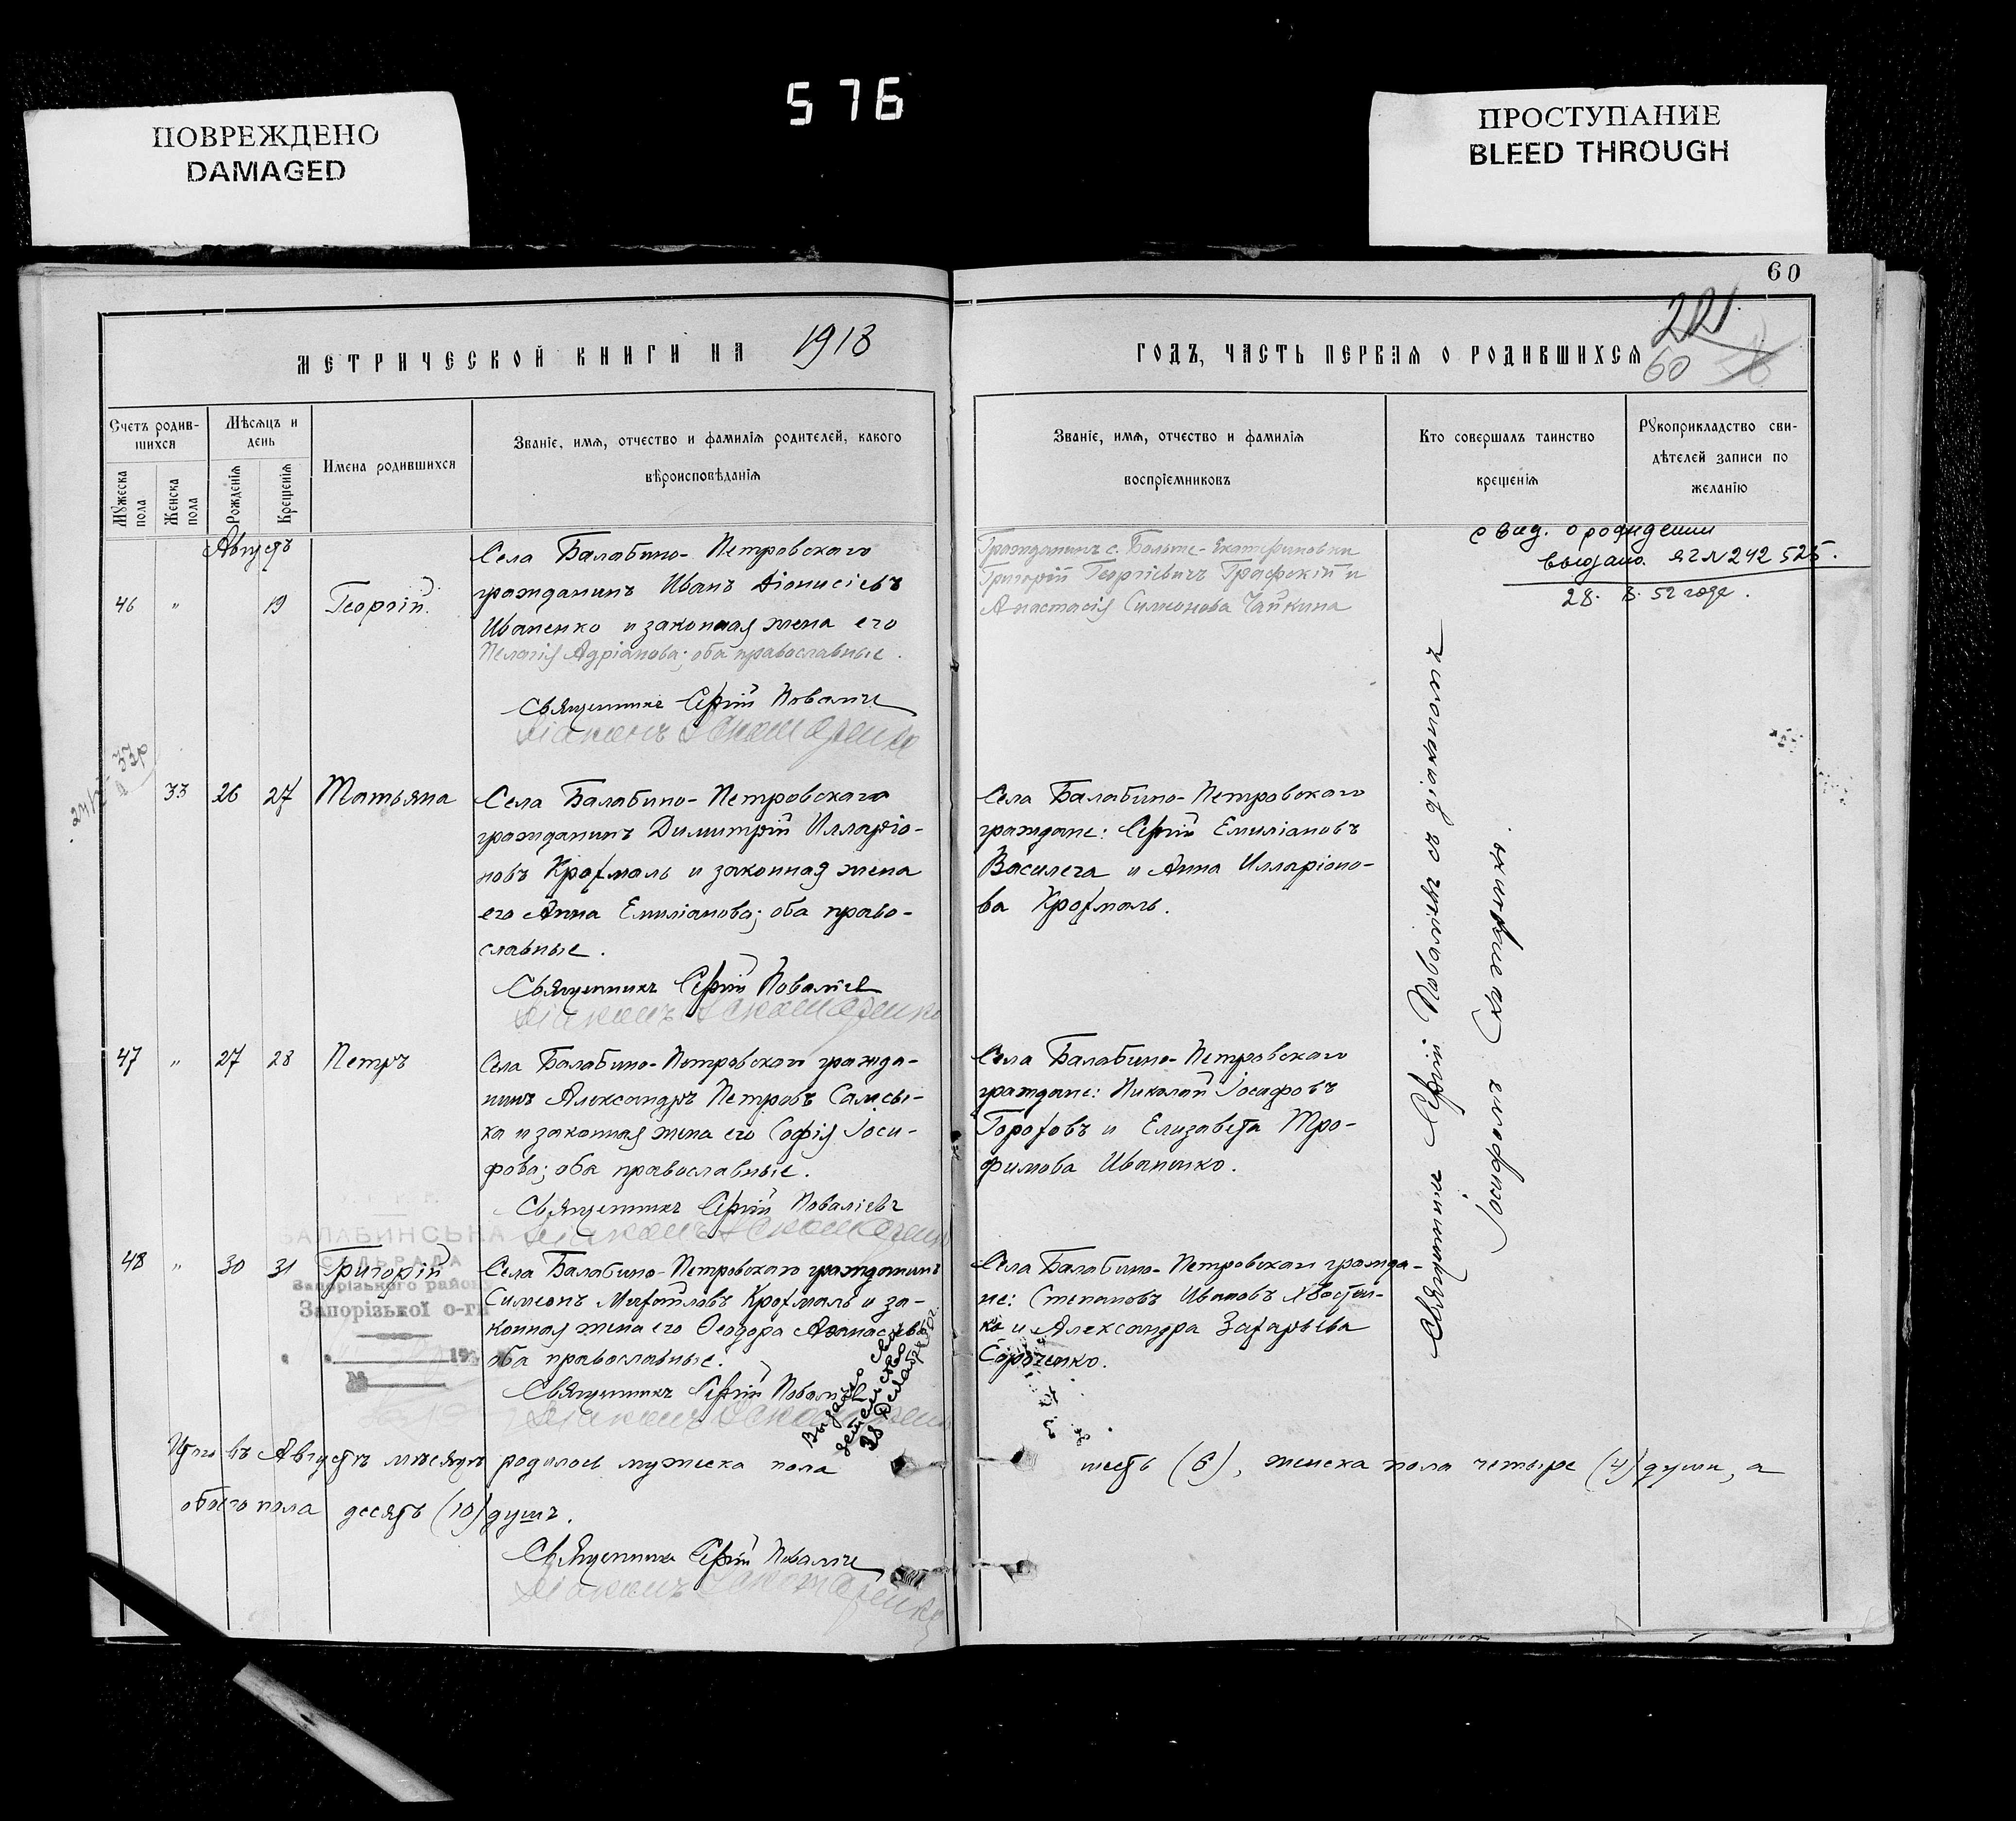 576
ПОВРЕЖДЕНО
DAMAGED
ПРОСТУПАНИЕ
BLEED THROUGH
60
221.
60
МЕТРИЧЕСКОЙ КНИГИ НА 1918
ГОДЪ, ЧАСТЬ ПЕРВАЯ О РОДИВШИХСЯ
Счетъ родив-
шихся
Мужеска
пола
Женска
пола
Мѣсяцъ и
день
Рожденія
Крещенія
Имена родившихся
Званіе, имя, отчество и фамилія родителей, какого
вѣроисповѣданія
Званіе, имя, отчество и фамилія
воспріемниковъ
Кто совершалъ таинство
крещенія
Рукоприкладство сви-
дѣтелей записи по
желанію
Августъ
46 " 19 Георгій
Села Балабино-Петровскаго
гражданинъ Иванъ Діонисіевъ
Иваненко и законная жена его
Пелагія Адріанова; оба православные.
Священникъ Сергій
Діаконъ
Гражданинъ с. Больше-Екатериновки
Григорій Георгіевичъ Графскій и
Анастасія Симеонова Чайкина
свид. о рождении
выдано. ЯГ N 242 525.
28. 8. 52 года.
33 26 27 Татьяна
Села Балабино-Петровскаго
гражданинъ Димитрій Илларіо-
новъ Крохмаль и законная жена
его Анна Емиліанова; оба право-
славные.
Священникъ Сергій Поваліевъ
Діаконъ
Села Балабино-Петровскаго
граждане: Сергій Емиліановъ
Василега и Анна Илларіоно-
ва Крохмаль.
47 " 27 28 Петръ
Села Балабино-Петровскаго гражда-
нинъ Александръ Петровъ
ка и законная жена его Софія Іоси-
фова; оба православные.
Священникъ Сергій Поваліевъ
Діаконъ
Села Балабино-Петровскаго
граждане: Николай Іосифовъ
Гороховъ и Елизавета Тро-
фимова Иваненко.
БАЛАБИНСЬКА
СІЛЬРАДА
Запорізького району
Запорізької о-ги
19
№
48 " 30 31 Григорій
Села Балабино-Петровскаго гражданинъ
Симеонъ Михайловъ Крохмаль и за-
конная жена его Ѳеодора Аѳанасьева
оба православные.
Священникъ Сергій Поваліевъ
Діаконъ
Выдано сви
детельство
28
Села Балабино-Петровскаго гражда-
не: Степановъ Ивановъ
ко и Александра Захарьева
Сороченко.
Священникъ Сергій Поваліевъ съ діакономъ
Іосифомъ
Итого въ Августѣ мѣсяцѣ родилось мужеска пола шесть (6), женска пола четыре (4) души, а
обоего пола десять (10) душъ.
Священникъ Сергій
Діаконъ